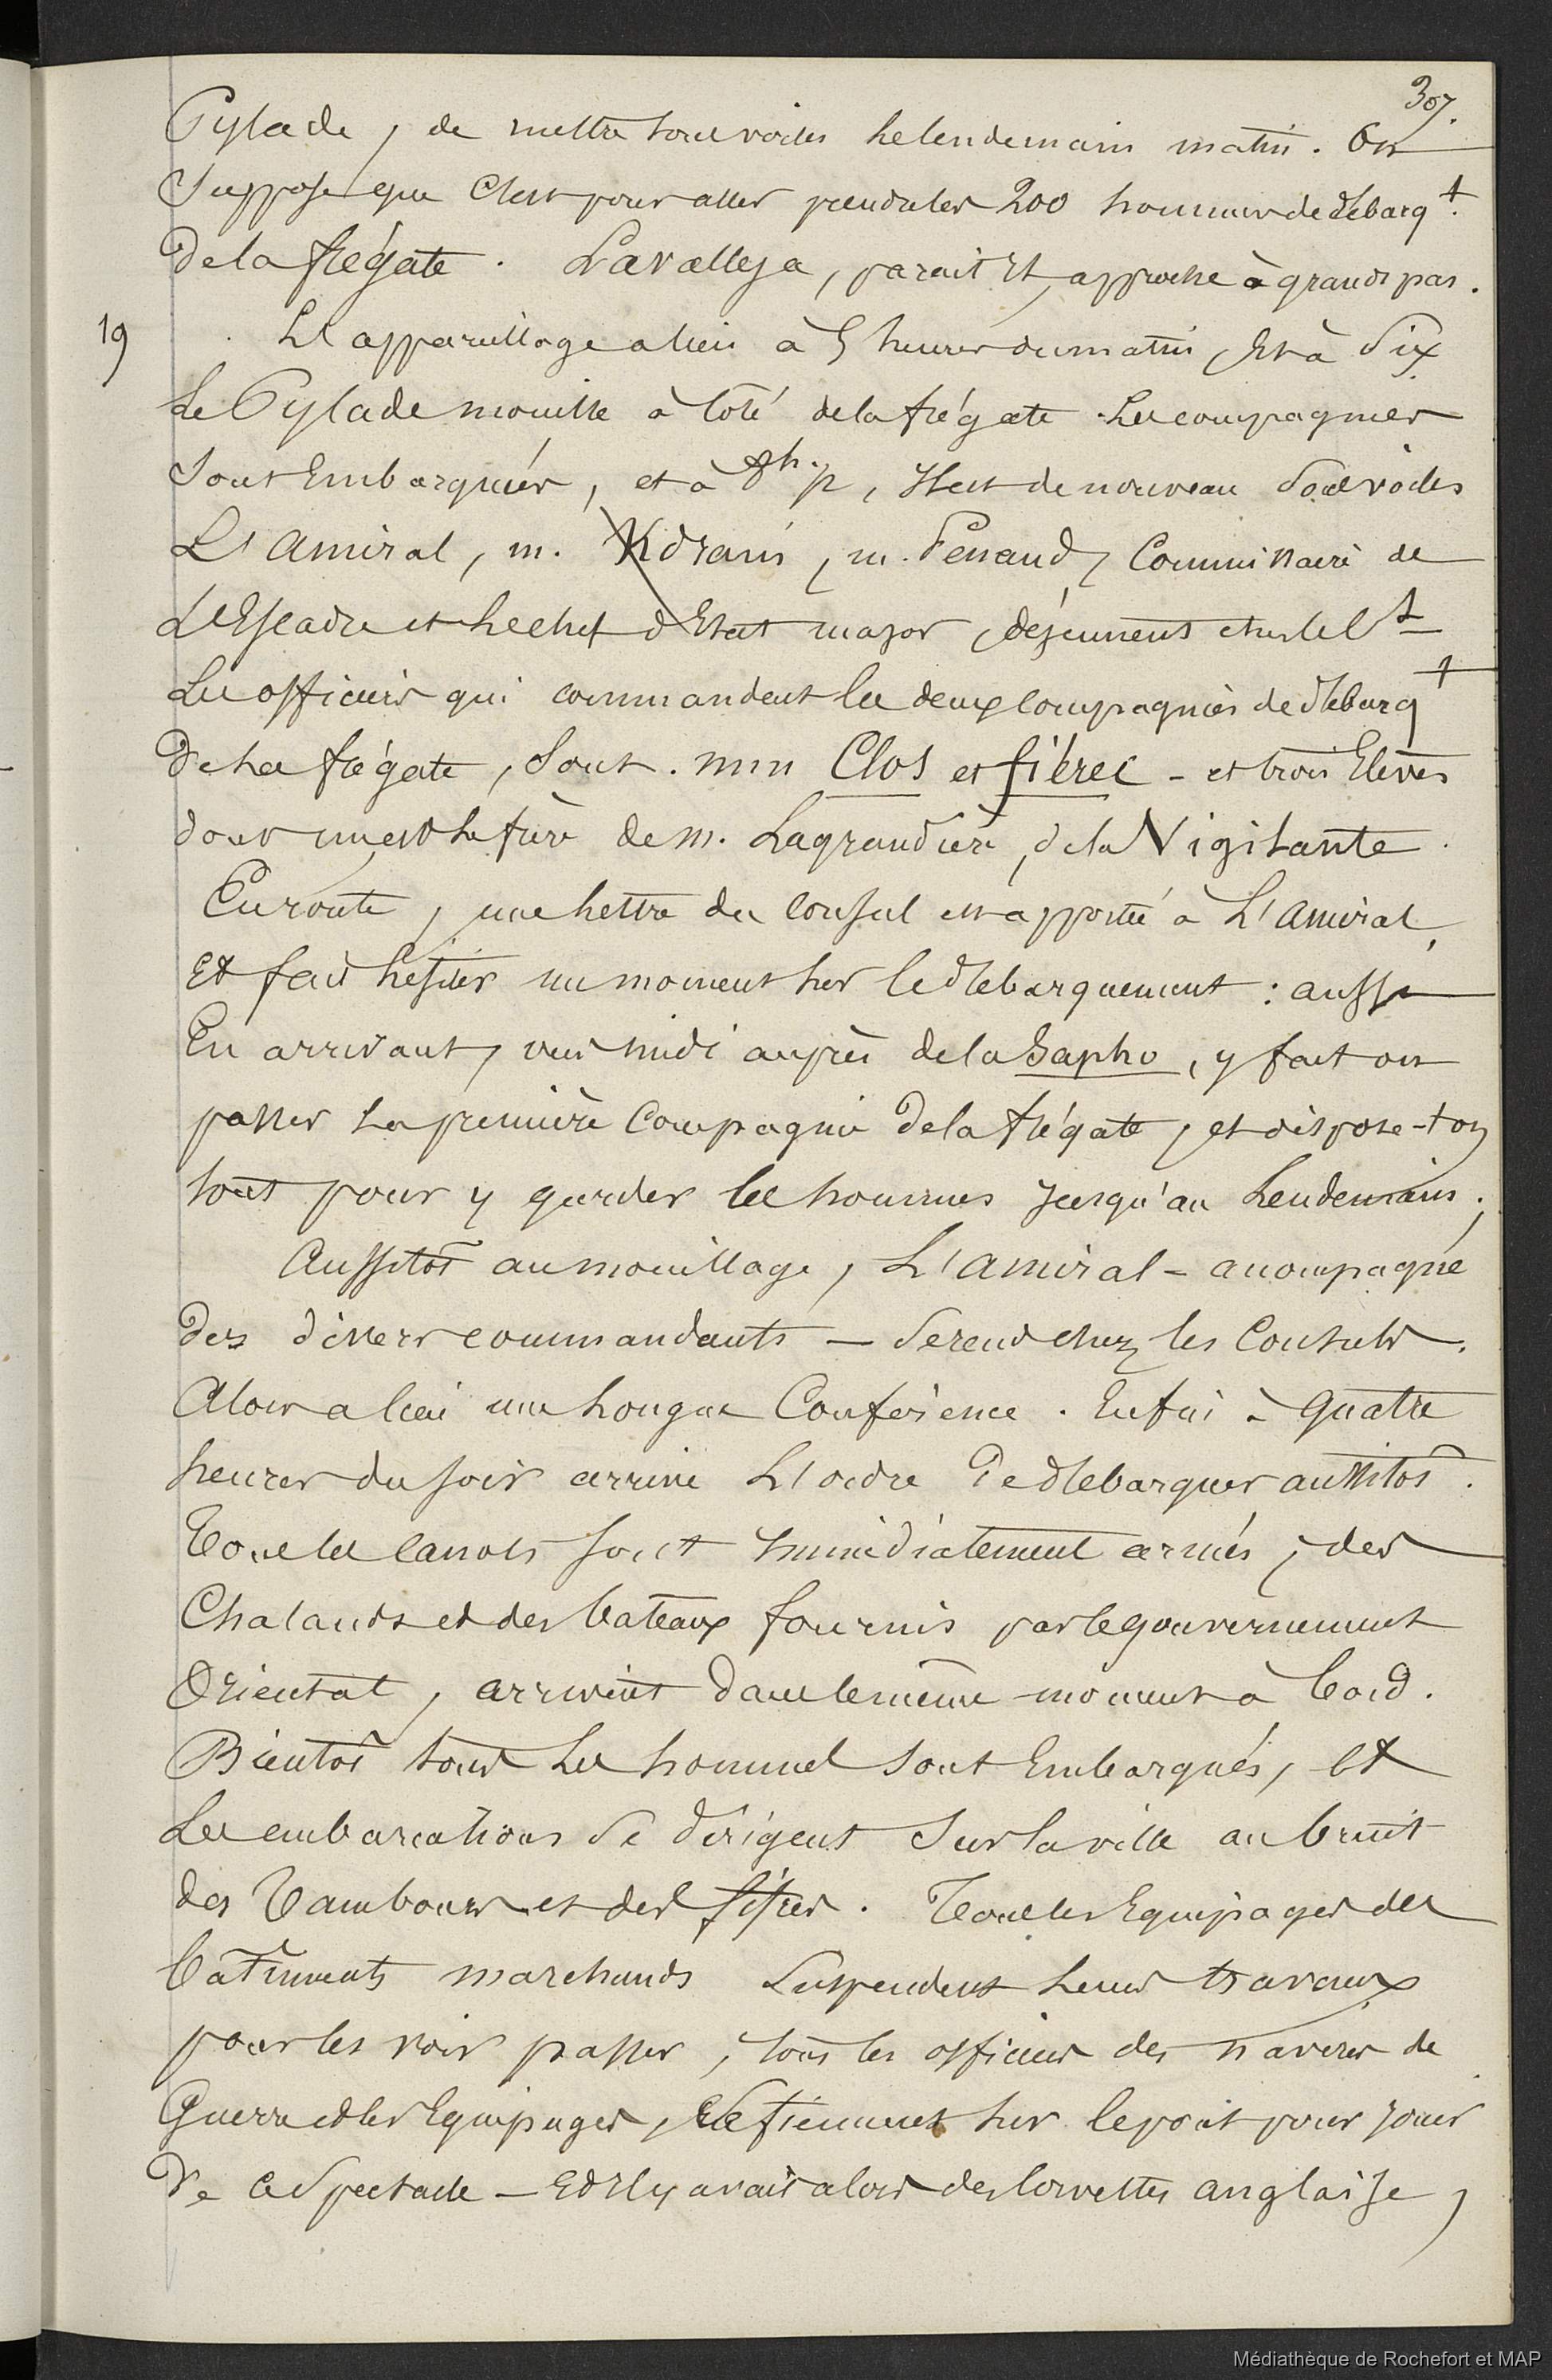 307.
Pylade, de mettre sous voiles le lendemain matin. On
Suppose que c'est pour aller prendre les 200 hommes de débarqt.
De la frégate. Lavalleja, parait-il, approche à grands pas.
19 L'appareillage a lieu à 5 heures du matin, et à Six
Le Pylade mouille à côté de la frégate. Les compagnies
Sont Embarquées, et à 8h. ½, Il est de nouveau sous voiles
L'amiral, m. Kdrain, m. Penaud, Commissaire de
L'Escadre et le chef d'Etat major, déjeunent chez le Ct
Les officiers qui commandent les deux compagnies de débarqt
De la frégate, Sont. mm Clos et fiérec - et trois Elèves
dont un est le frère de m. Lagrandière, de la Vigilante.
En route, une lettre du Consul est apportée à L'amiral,
Et fait hésiter un moment sur le débarquement : aussi
En arrivant, vers midi auprès de la Sapho, y fait on
passer la première Compagnie De la frégate, et dispose-t on
tout pour y garder les hommes Jusqu'au Lendemain.
Aussitôt au mouillage, L'amiral - accompagné
Des divers commandants — Se rend chez les Consuls.
Alors a lieu une longue Conférence. Enfin à quatre
heures du soir arrive L'ordre De débarquer aussitôt.
Tous les canots sont Immédiatement armés, des
Chalands et des bateaux fournis par le gouvernement
Oriental, arrivent Dans le même moment à bord.
Bientôt tous Les hommes sont Embarqués, et
Les embarcations se dirigent Sur la ville au bruit
des Tambours et des fifres. Tous les Equipages des
bâtiments marchands Suspendent Leurs travaux
pour les voir passer, tous les officiers des navires de
Guerre et les Equipages, se tiennent sur le pont pour jouir
De ce Spectacle — Et Il y avait alors des corvettes anglaise,
Médiathèque de Rochefort et MAP